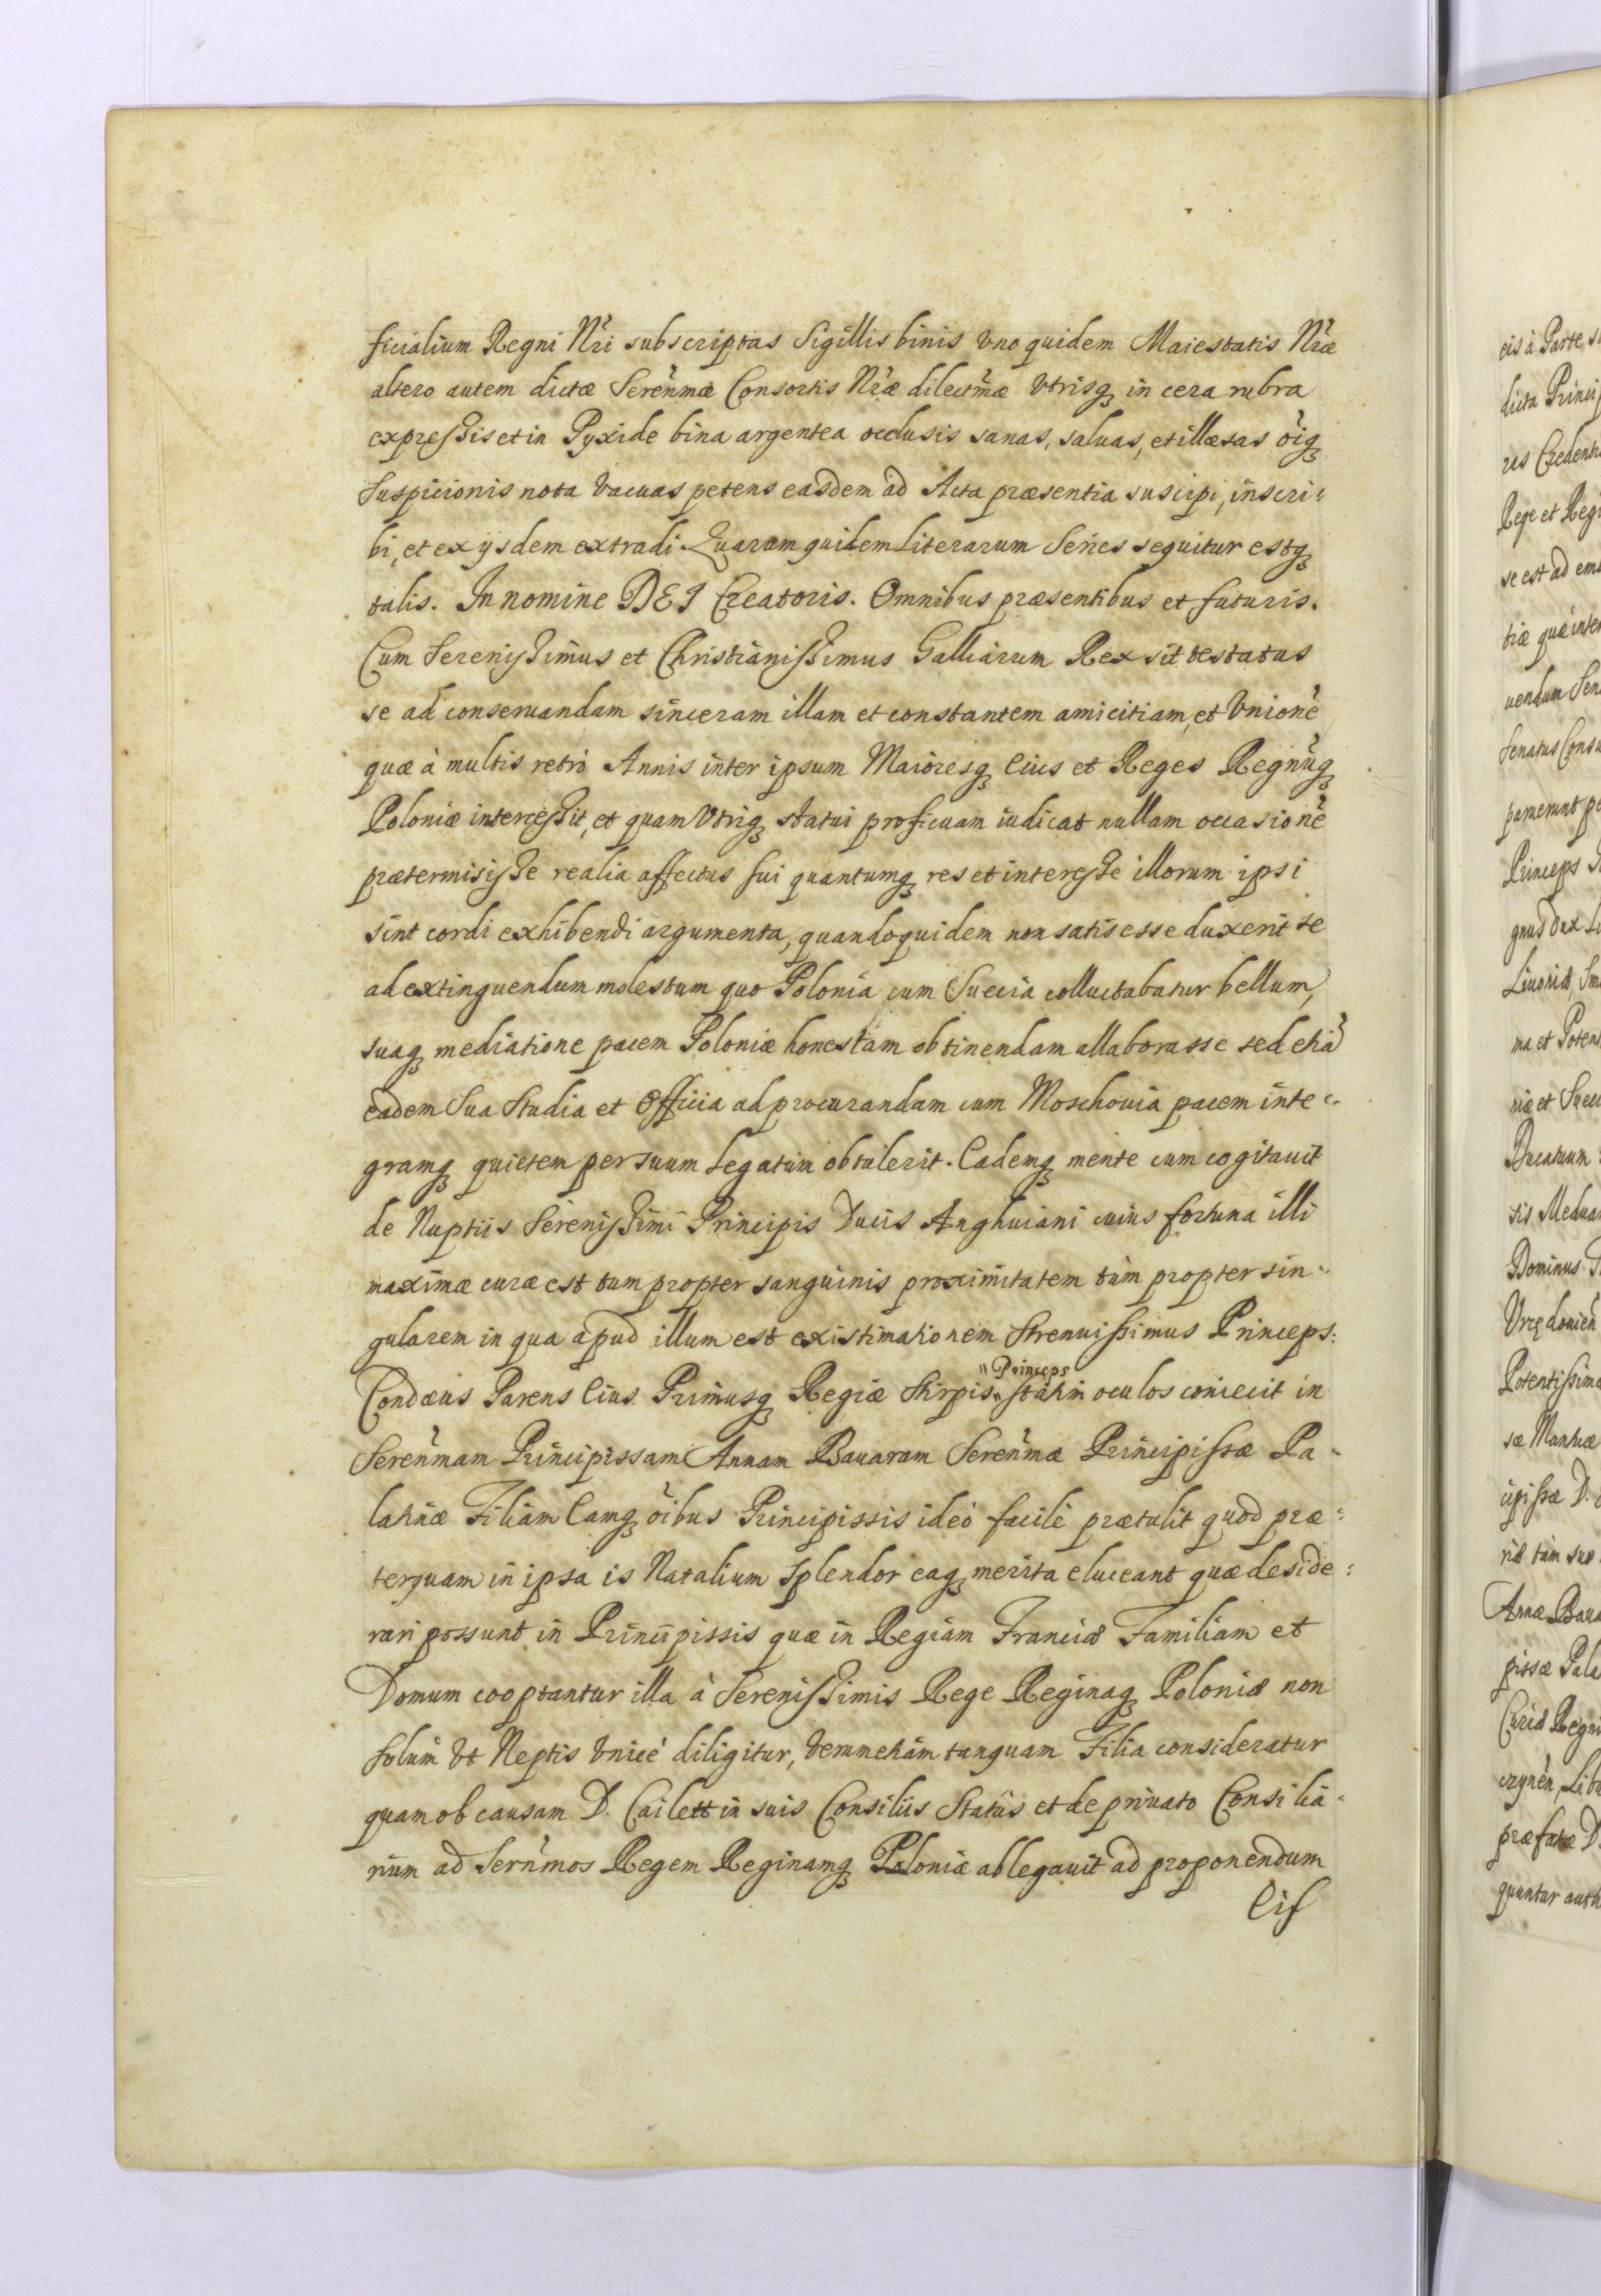 ficialium Regni Nři subscriptas Sigillis binis Vno quidem Maiestatis Nřæ
altero autem dictæ Sereňmæ Consortis Nřæ dilectm̃æ Vtrisq, in cera rubra
expressis et in Pyxide bina argentea occlusis sanas, saluas, et illæsas õiq,
Suspicionis nota Vacuas petens easdem ad Acta præsentia suscipi, inscri=
bi, et ex ijsdem extradi. Quarum quidem Literarum Series sequitur estq,
talis. In nomine DEI Creatoris. Omnibus præsentibus et futuris.
Cum Serenissimus et Christianissimus Galliarum Rex sit testatus
se ad conseruandam sinceram illam et constantem amicitiam, et Vnionẽ
quæ à multis retrò Annis inter ipsum Maioresq, Eius et Reges Regnũq,
Poloniæ intercessit, et quam Vtriq, statui proficuam iudicat nullam occasionẽ
prætermisisse realia affectus sui quantumq, res et interesse illorum ipsi
sint cordi exhibendi argumenta, quandoquidem non satis esse duxerit se
ad extinguendum molestum quo Polonia cum Suecia colluctabatur bellum,
suaq, mediatione pacem Poloniæ honestam obtinendam allaborasse sed etiã
eadem Sua Studia et Officia ad procurandam cum Moschouia pacem inte=
gramq, quietem per suum Legatum obtulerit. Eademq, mente cum cogitauit
de Nuptiis Serenissimi Principis Ducis Anghuiani cuius fortuna illi
maximæ curæ est tum propter sanguinis proximitatem tùm propter sin=
gularem in qua apud illum est existimationem Strenuissimus Princeps.
"Princeps
Condæus Parens Eius Primusq, Regiæ Stirpis" statim oculos coniecit in
Sereňmam Principissam Annam Bauaram Sereňmæ Principissæ Pa=
latinæ Filiam Eamq, õibus Principissis ideò facilè prætulit quod præ=
terquam in ipsa is Natalium Splendor eaq, merita eluceant quæ deside=
rari possunt in Principissis quæ in Regiam Franciæ Familiam et
Domum cooptantur illa à Serenissimis Rege Reginaq, Poloniæ non
solum Vt Neptis Vnicè diligitur, Verumetiam tanquam Filia consideratur
quam ob causam D. Cailett in suis Consiliis Statûs et de priuato Consilia=
rium ad Serňmos Regem Reginamq, Poloniæ ablegauit ad proponendum
Eis
eis à Parte
dicta Princip
Rege et Regi
se est ad
Senatus Cons
Princeps
gnus Dux
ma et Poten
niæ et Suec
Ducatuum
Dominus
Potentissima
sæ Mantuæ
cipissæ D.
Annæ Baua
pissæ Pala
Curiæ Regni
præfatæ D.
quuntur